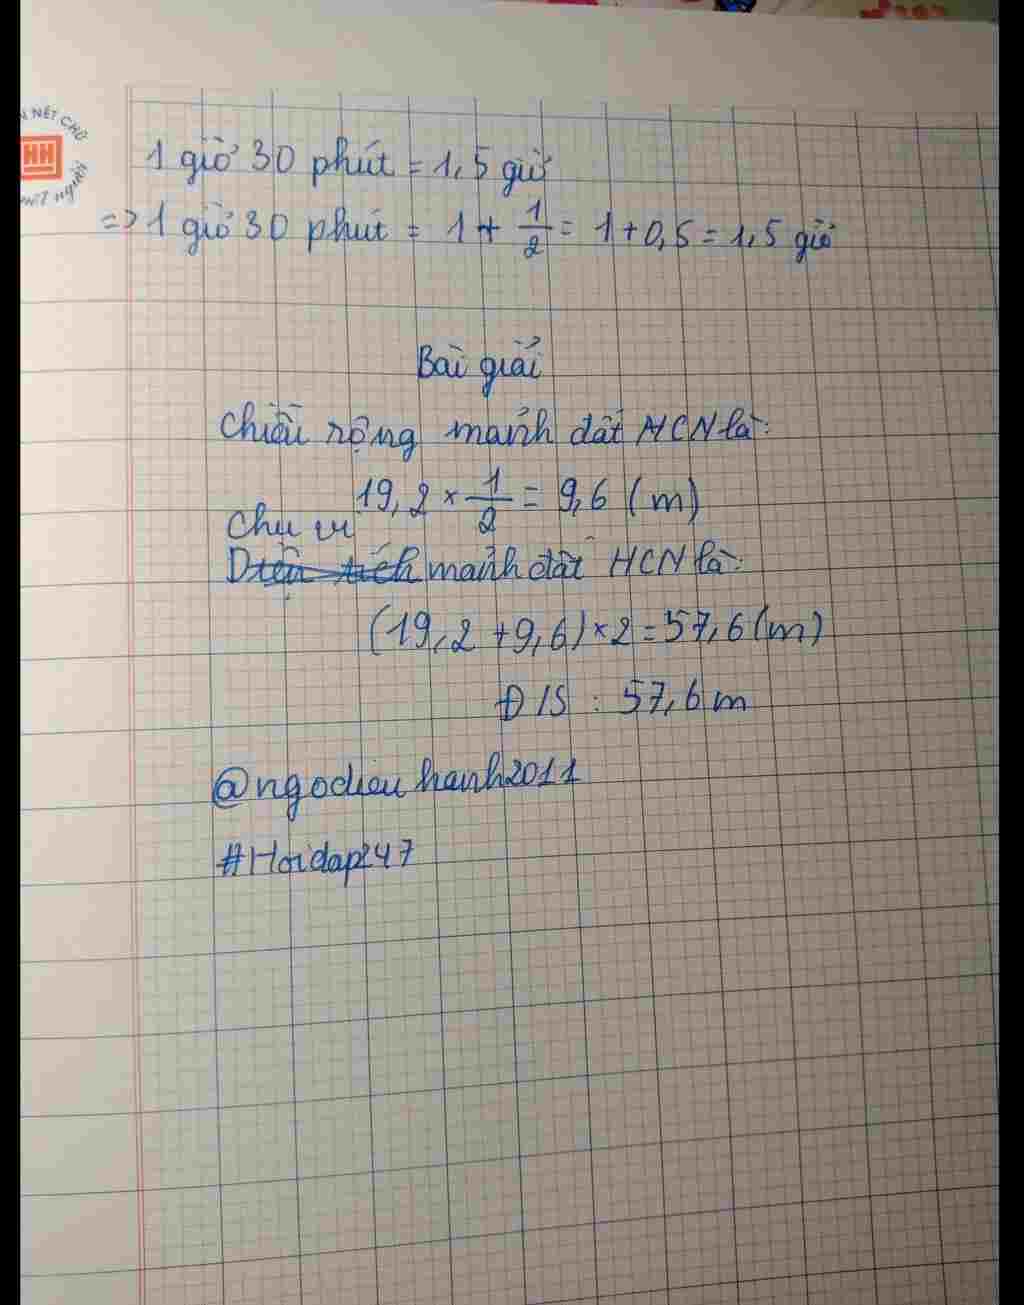 N NÉT CHỮ
HH
nết người
1 giờ 30 phút = 1,5 giờ
=> 1 giờ 30 phút = 1 + 1/2 = 1 + 0,5 = 1,5 giờ
Bài giải
Chiều rộng mảnh đất HCN là:
19,2 × 1/2 = 9,6 (m)
Chu vi
Diện tích mảnh đất HCN là:
(19,2 + 9,6) × 2 = 57,6 (m)
Đ/S : 57,6 m
@ngodieuhanh2011
#Hoidap247